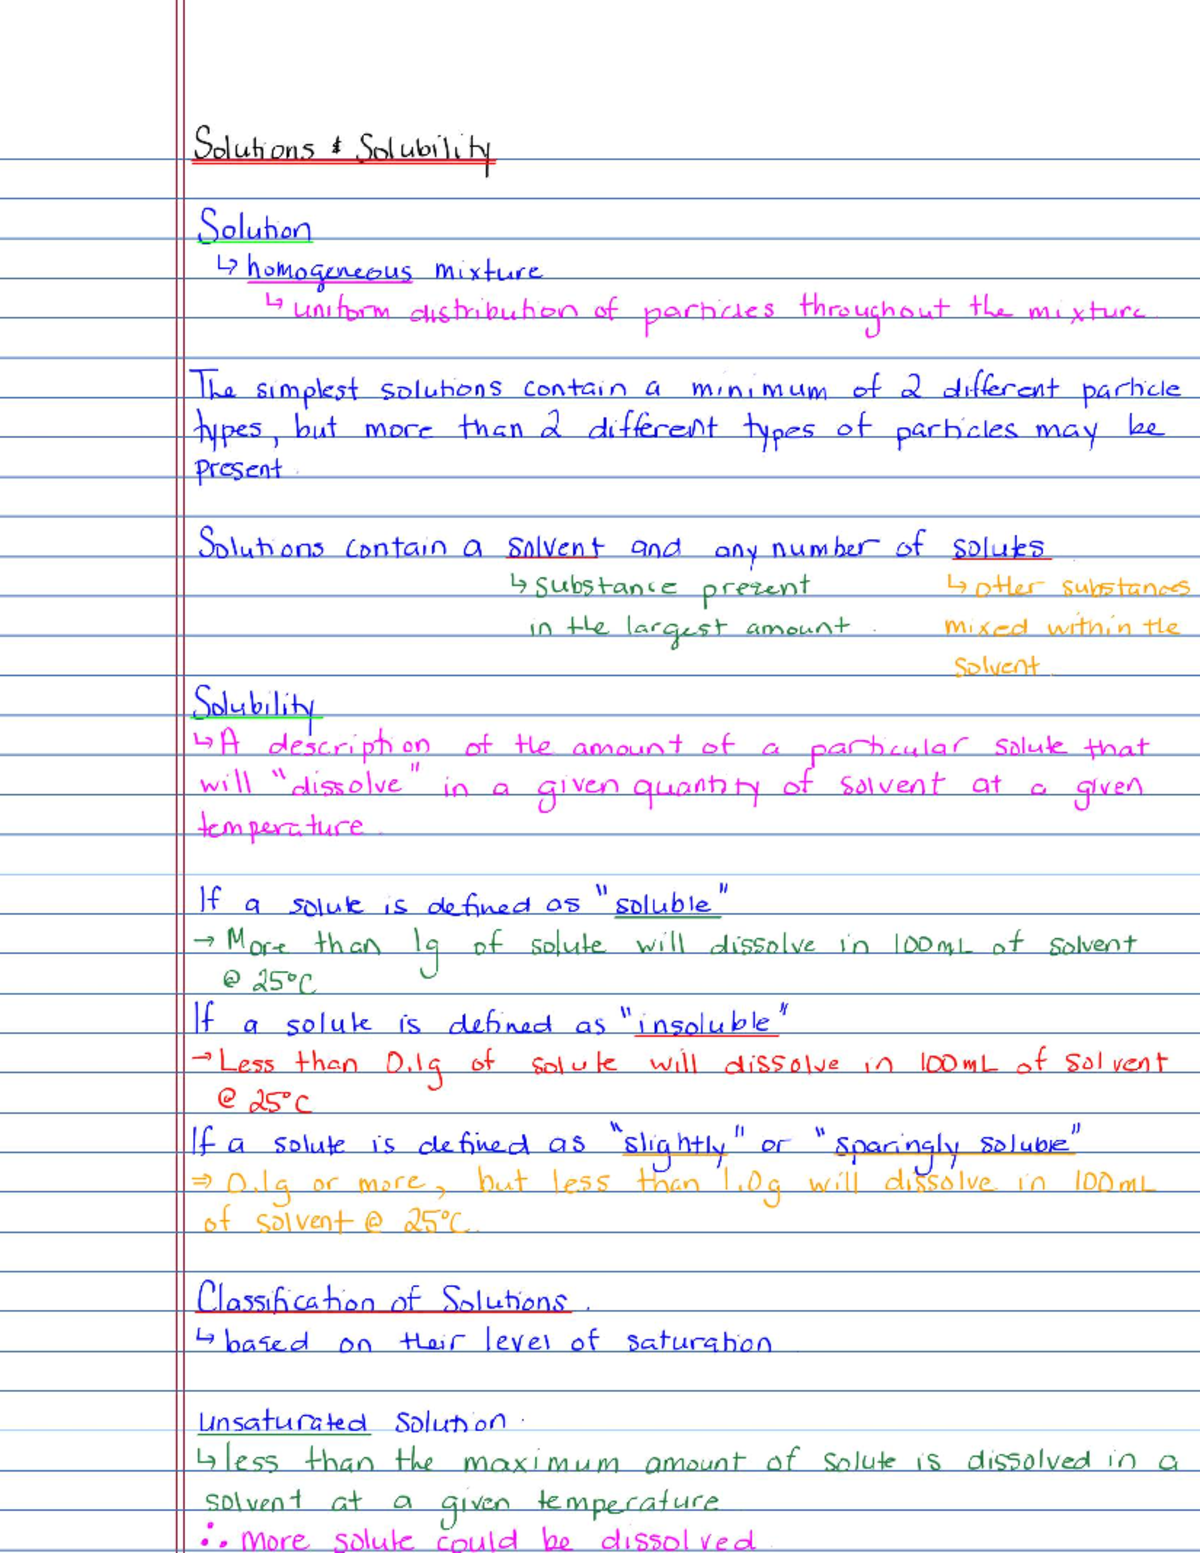 Solutions & Solubility
Solution
↳ homogeneous mixture
↳ uniform distribution of particles throughout the mixture
The simplest solutions contain a minimum of 2 different particle
types, but more than 2 different types of particles may be
present.
Solutions contain a solvent and any number of solutes
↳ substance present ↳ other substances
in the largest amount. mixed within the
solvent.
Solubility
↳ A description of the amount of a particular solute that
will "dissolve" in a given quantity of solvent at a given
temperature.
If a solute is defined as "soluble"
→ More than 1g of solute will dissolve in 100mL of solvent
@ 25°C
If a solute is defined as "insoluble"
→ Less than 0.1g of solute will dissolve in 100mL of solvent
@ 25°C
If a solute is defined as "slightly" or "sparingly soluble"
⇒ 0.1g or more, but less than 1.0g will dissolve in 100mL
of solvent @ 25°C.
Classification of Solutions.
↳ based on their level of saturation
Unsaturated Solution.
↳ less than the maximum amount of solute is dissolved in a
solvent at a given temperature
∴ More solute could be dissolved